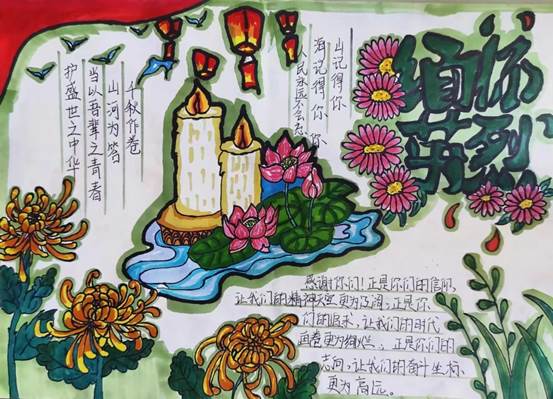 缅怀
英烈
山记得你
海记得你
人民永远不会忘
你
千秋作卷
山河为答
当以吾辈之青春
护盛世之中华
感谢你们！正是你们的信仰，
让我们的精神天空更为辽阔；正是你
们的追求，让我们的时代
画卷更为绚烂。正是你们的
志向，让我们的奋斗坐标
更为高远。